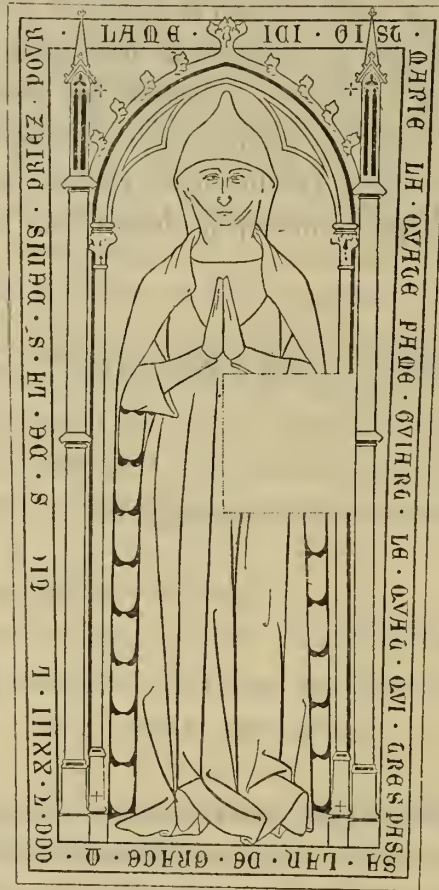 LAME · ICI · GIST ·
MARIE LA QVATE FAME · GVIART · LE QVAT · QVI · TRESPAS
SA LAN · DE · GRACE · M ·
CCC · T · XXIII · L TI S · DE · LA · S · DENIS · PRIEZ · POVR